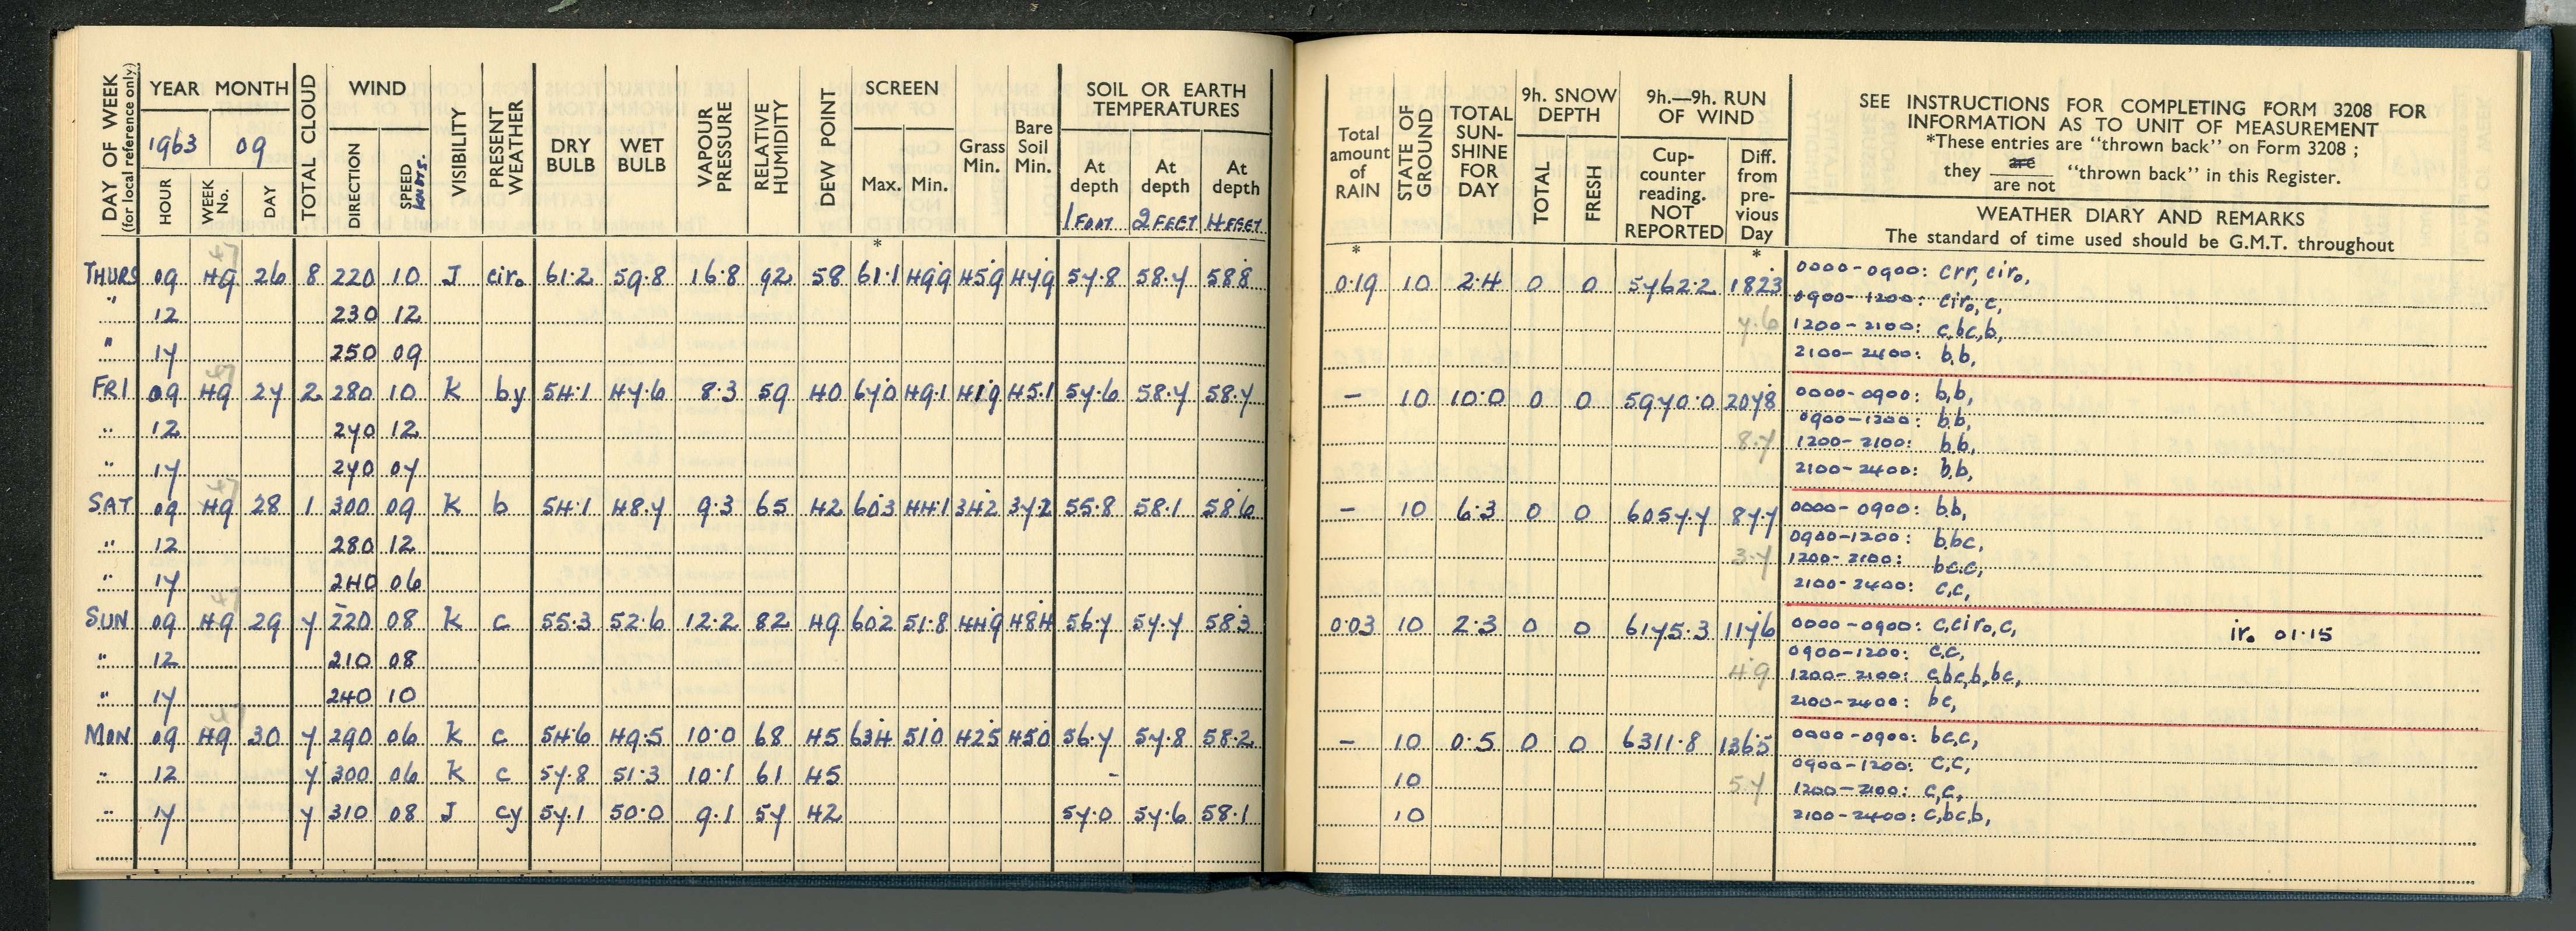 DAY OF WEEK
(for local reference only)
YEAR MONTH
1963 09
HOUR
WEEK No.
DAY
TOTAL CLOUD
WIND
DIRECTION
SPEED KNOTS.
VISIBILITY
PRESENT WEATHER
DRY BULB
WET BULB
VAPOUR PRESSURE
RELATIVE HUMIDITY
DEW POINT
SCREEN
Max. Min.
*
Grass Min.
Bare Soil Min.
SOIL OR EARTH TEMPERATURES
At depth 1 FOOT
At depth 2 FEET
At depth 4 FEET
THURS 09 49 26 8 220 10 J ciro 61.2 59.8 16.8 92 58 61.1 49.9 45.9 47.9 57.8 58.7 58.8
" 12 230 12
" 17 250 09
FRI 09 49 27 2 280 10 K by 54.1 47.6 8.3 59 40 67.0 49.1 41.9 45.1 57.6 58.7 58.7
" 12 270 12
" 17 270 07
SAT 09 49 28 1 300 09 K b 54.1 48.7 9.3 65 42 60.3 44.1 34.2 37.2 55.8 58.1 58.6
" 12 280 12
" 17 240 06
SUN 09 49 29 7 220 08 K c 55.3 52.6 12.2 82 49 60.2 51.8 44.9 48.4 56.7 57.7 58.3
" 12 210 08
" 17 240 10
MON 09 49 30 7 290 06 K c 54.6 49.5 10.0 68 45 63.4 51.0 42.5 45.0 56.7 57.8 58.2
" 12 7 300 06 K c 57.8 51.3 10.1 61 45 -
" 17 7 310 08 J cy 57.1 50.0 9.1 57 42 57.0 57.6 58.1
Total amount of RAIN
*
STATE OF GROUND
TOTAL SUN-SHINE FOR DAY
9h. SNOW DEPTH
TOTAL
FRESH
9h.—9h. RUN OF WIND
Cup-counter reading. NOT REPORTED
Diff. from pre-vious Day
*
SEE INSTRUCTIONS FOR COMPLETING FORM 3208 FOR
INFORMATION AS TO UNIT OF MEASUREMENT
*These entries are "thrown back" on Form 3208 ;
they are / are not "thrown back" in this Register.
WEATHER DIARY AND REMARKS
The standard of time used should be G.M.T. throughout
0.19 10 2.4 0 0 5762.2 182.3 0000-0900: crr, ciro,
0900-1200: ciro, c,
7.6 1200-2100: c,bc,b,
2100-2400: b,b,
- 10 10.0 0 0 5970.0 207.8 0000-0900: b,b,
0900-1200: b,b,
8.7 1200-2100: b,b,
2100-2400: b,b,
- 10 6.3 0 0 6057.7 87.7 0000-0900: b,b,
0900-1200: b,bc,
3.7 1200-2100: bc,c,
2100-2400: c,c,
0.03 10 2.3 0 0 6175.3 117.6 0000-0900: c,ciro,c, iro 01.15
0900-1200: c,c,
4.9 1200-2100: c,bc,b,bc,
2100-2400: bc,
- 10 0.5 0 0 6311.8 136.5 0000-0900: bc,c,
0900-1200: c,c,
10 5.7 1200-2100: c,c,
10 2100-2400: c,bc,b,